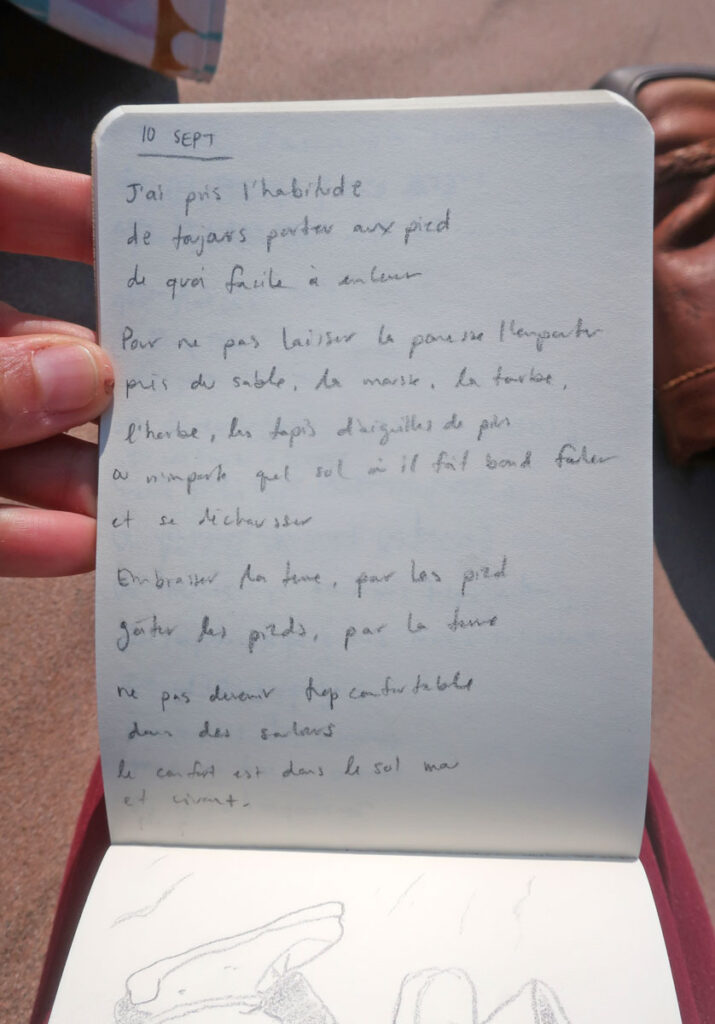 10 SEPT
J'ai pris l'habitude
de toujours porter aux pied
de quoi facile à enlever
Pour ne pas laisser la paresse l'emporter
près du sable, la mousse, la tourbe,
l'herbe, les tapis d'aiguilles de pins
ou n'importe quel sol où il fait bond fouler
et se déchausser
Embrasser la terre, par les pied
gâter les pieds, par la terre
ne pas devenir trop confortable
dans des souliers
le confort est dans le sol
et vivant.